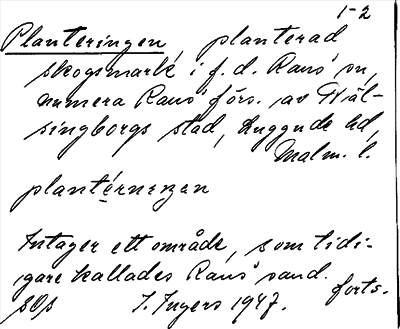 1-2
Planteringen, planterad
skogsmark i f. d. Raus sn,
numera Raus förs. av Häl-
singborgs stad, Luggude hd,
Malm. l.
plantérnenzan
Intager ett område, som tidi-
gare kallades Raus sand.
forts.
SOs I. Ingers 1947.